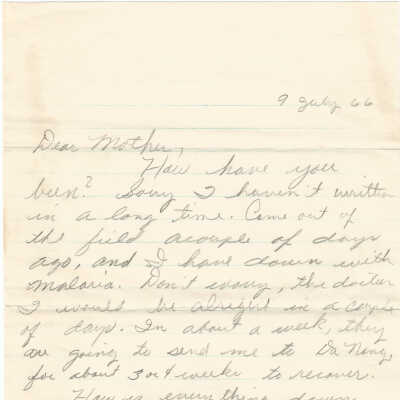 9 July 66
Dear Mother,
How have you
been? Sorry I haven't written
in a long time. Came out of
the field acouple of days
ago, and I have down with
malaria. Don't worry, the doctor
I would be alright in a couple
of days. In about a week, they
are going to send me to Da Nang,
for about 3 or 4 weeks to recover.
How is everything down